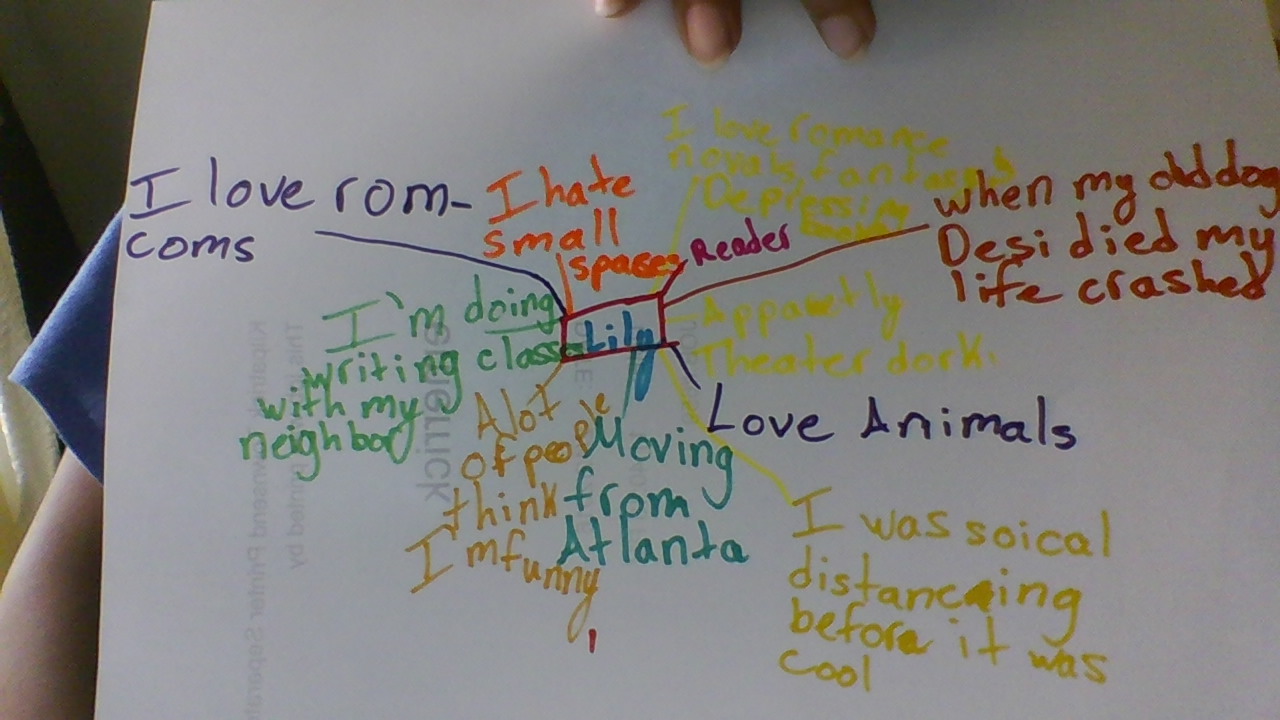 I love rom-
coms
I hate
small
spaces
I love romance
novels, fantasy
Depressing
Reader
when my old dog
Desi died my
life crashed
I'm doing
writing classes
with my
neighbor
Lily
Appawtly
Theater dork.
Love Animals
Alot
of people
think
I'm funny
Moving
from
Atlanta
I was soical
distancing
before it was
cool